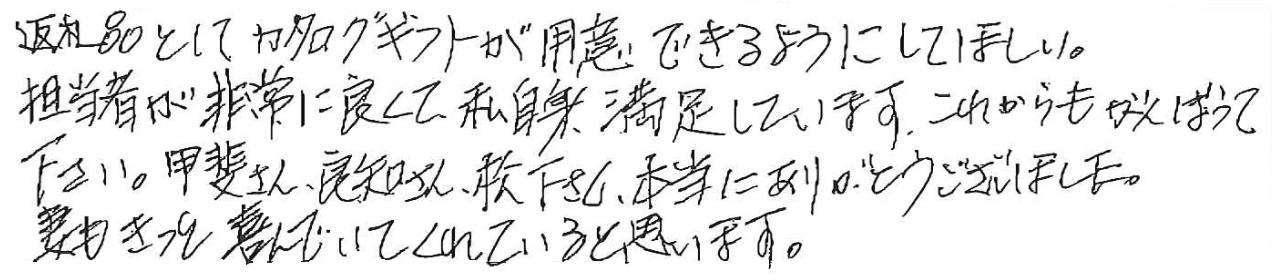 返礼品としてカタログギフトが用意できるようにしてほしい。
担当者が非常に良くて、私自身、満足しています。これからもがんばって
下さい。甲斐さん、良知さん、松下さん、本当にありがとうございました。
妻もきっと喜んでいてくれていると思います。